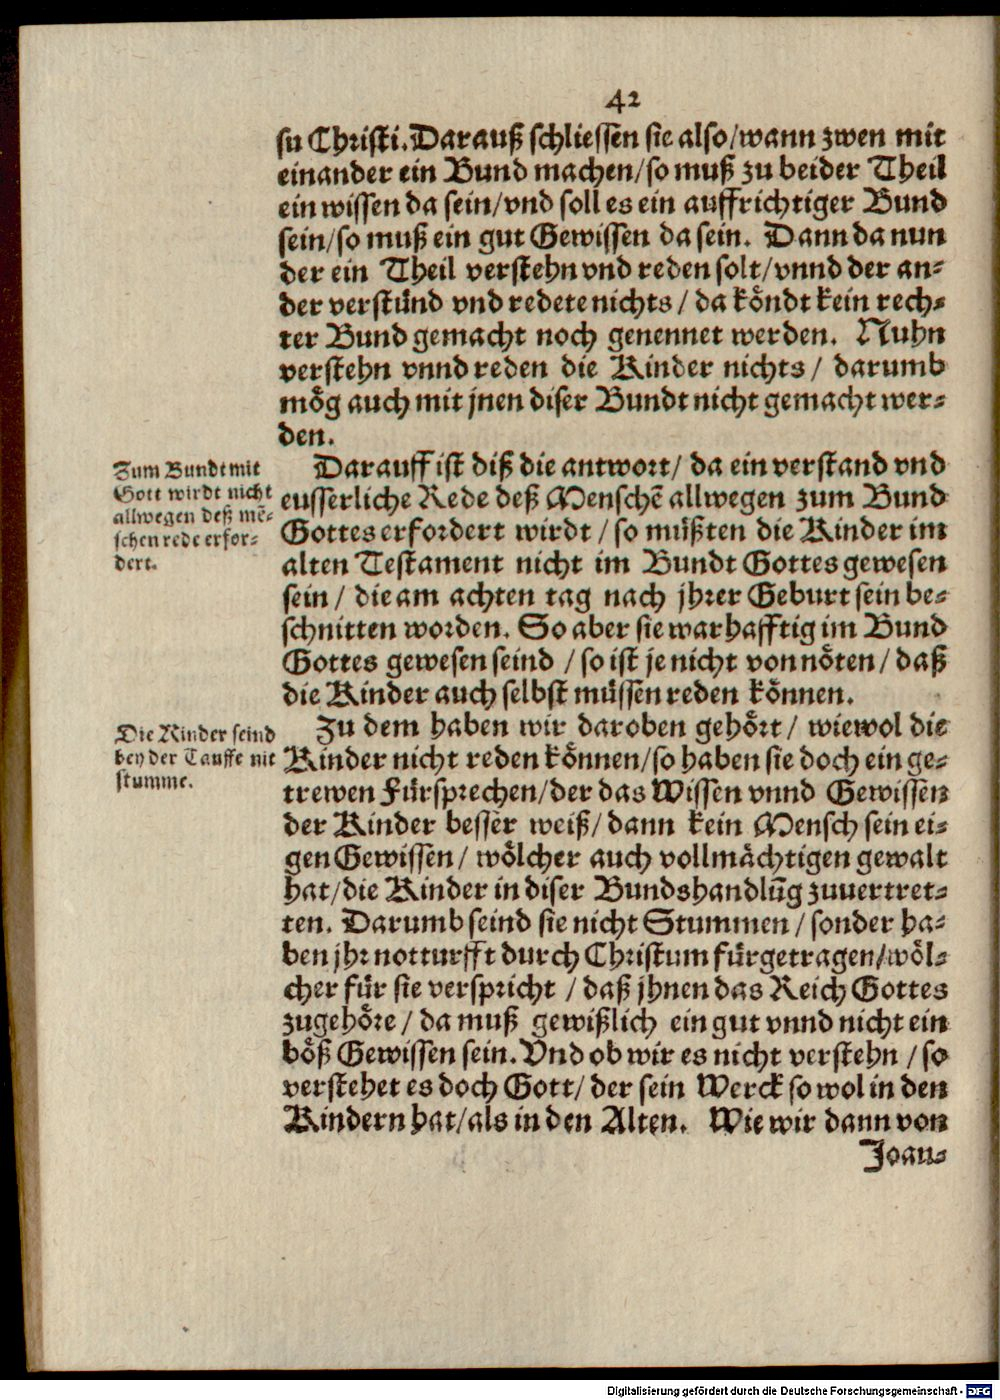 42
su Christi. Darauß schliessen sie also/wann zwen mit
einander ein Bund machen/so muß zu beider Theil
ein wissen da sein/vnd soll es ein auffrichtiger Bund
sein/so muß ein gut Gewissen da sein. Dann da nun
der ein Theil verstehn vnd reden solt/vnnd der an-
der verstůnd vnd redete nichts / da koͤndt kein rech-
ter Bund gemacht noch genennet werden. Nuhn
verstehn vnnd reden die Kinder nichts / darumb
moͤg auch mit jnen diser Bundt nicht gemacht wer-
den.
Zum Bundt mit
Gott wirdt nicht
allwegen deß mẽ-
schen rede erfor-
dert.
Darauff ist diß die antwort/ da ein verstand vnd
eusserliche Rede deß Menschẽ allwegen zum Bund
Gottes erfordert wirdt / so muͤßten die Kinder im
alten Testament nicht im Bundt Gottes gewesen
sein / die am achten tag nach jhrer Geburt sein be-
schnitten worden. So aber sie warhafftig im Bund
Gottes gewesen seind / so ist je nicht von noͤten / daß
die Kinder auch selbst muͤssen reden koͤnnen.
Die Kinder seind
bey der Tauffe nit
stumme.
Zu dem haben wir daroben gehoͤrt / wiewol die
Kinder nicht reden koͤnnen/so haben sie doch ein ge-
trewen Fuͤrsprechen/der das Wissen vnnd Gewissen
der Kinder besser weiß/ dann kein Mensch sein ei-
gen Gewissen / woͤlcher auch vollmaͤchtigen gewalt
hat/die Kinder in diser Bundshandlũg zuuertret-
ten. Darumb seind sie nicht Stummen / sonder ha-
ben jhr notturfft durch Christum fuͤrgetragen/woͤl-
cher fuͤr sie verspricht / daß jhnen das Reich Gottes
zugehoͤre / da muß gewißlich ein gut vnnd nicht ein
boͤß Gewissen sein. Vnd ob wir es nicht verstehn / so
verstehet es doch Gott/ der sein Werck so wol in den
Kindern hat/als in den Alten. Wie wir dann von
Joan-
Digitalisierung gefördert durch die Deutsche Forschungsgemeinschaft - DFG